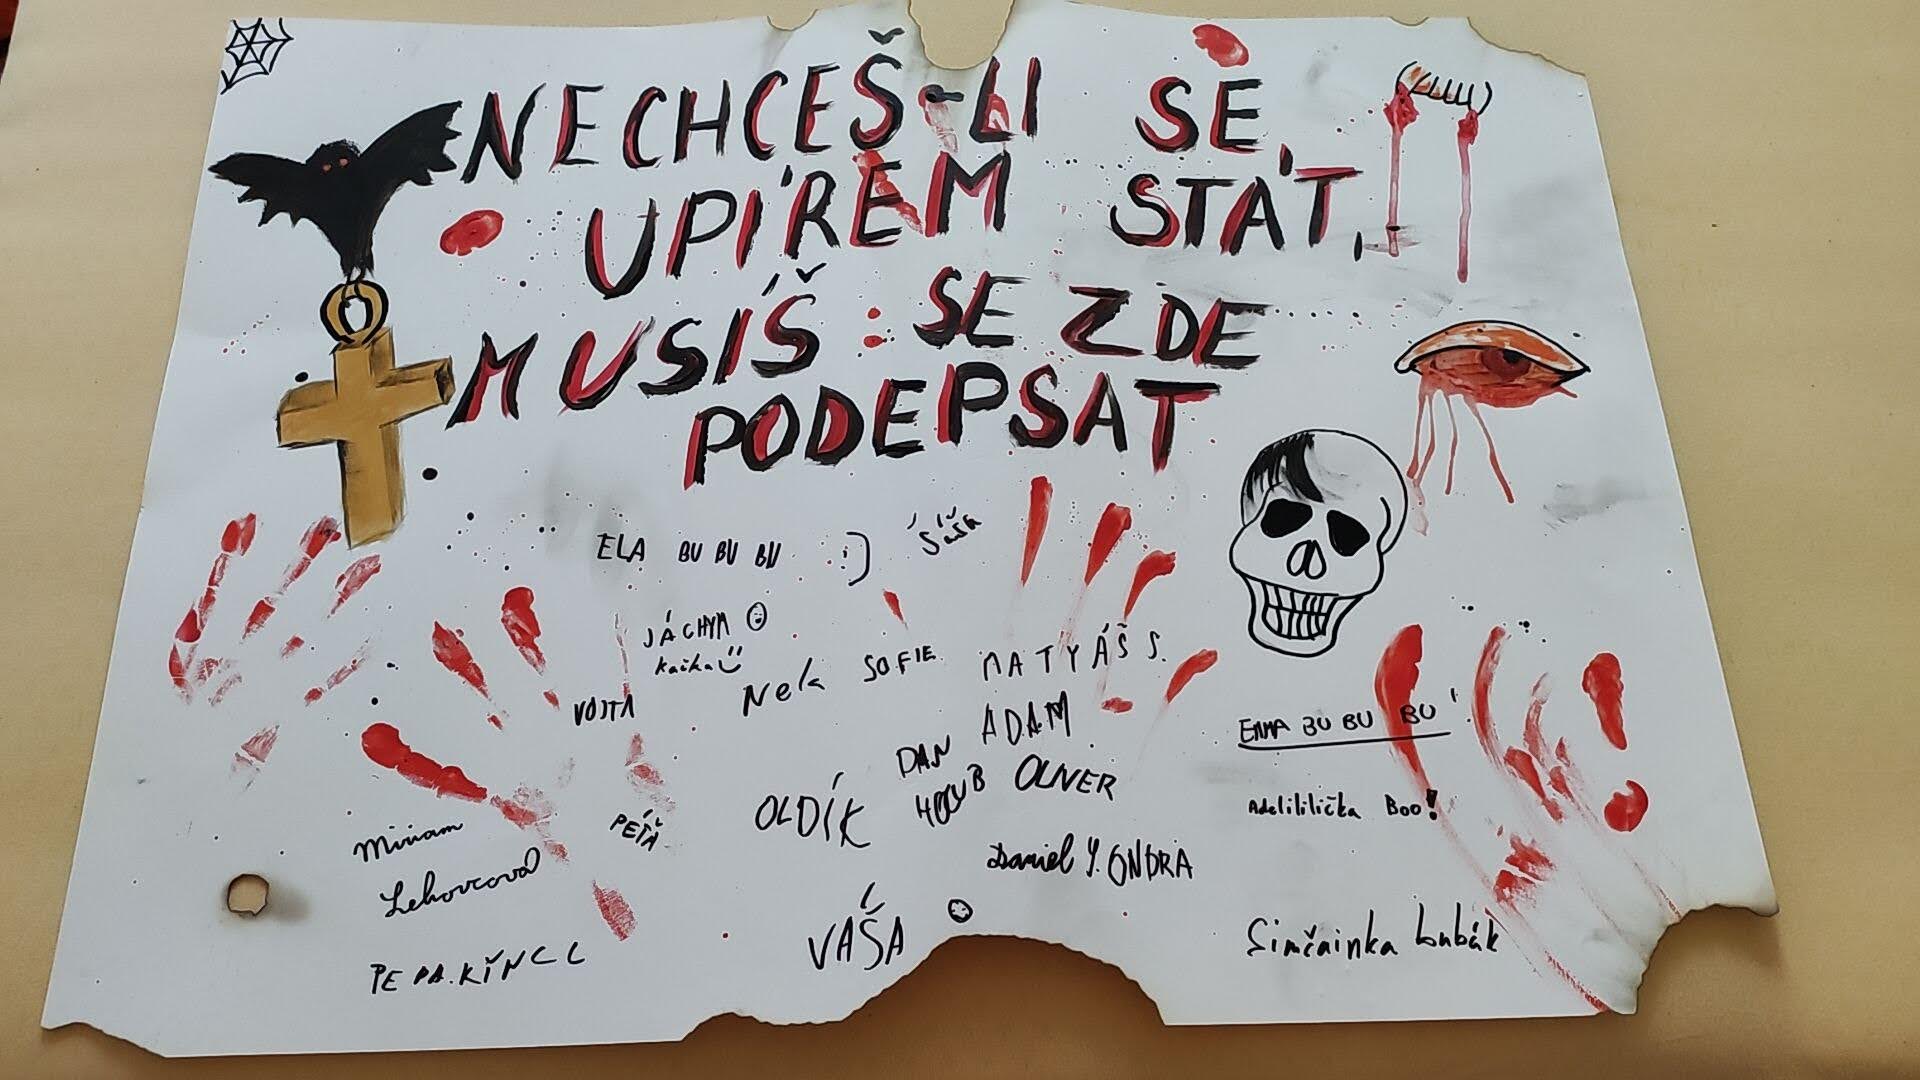 NECHCEŠ-LI SE
UPÍREM STÁT,
MUSÍŠ SE ZDE
PODEPSAT
ELA BU BU BU :)
JÁCHYM
Kačka
Nela
SOFIE
MATYÁŠ S.
VOJTA
ADAM
DAN
HOLUB
OLIVER
EMMA BU BU BU
OLDÍK
PÉŤA
Adelililička Boo!
Miriam
Lehovcová
Daniel Y.
ONDRA
VÁŠA
Simčainka bubák
PEPA.KŘNCL